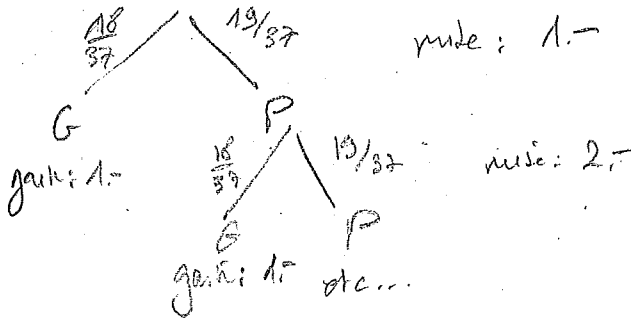 18/37 19/37 mise : 1.-
G P
gain : 1.- 18/37 19/37 mise : 2.-
G P
gain : 1.- etc...